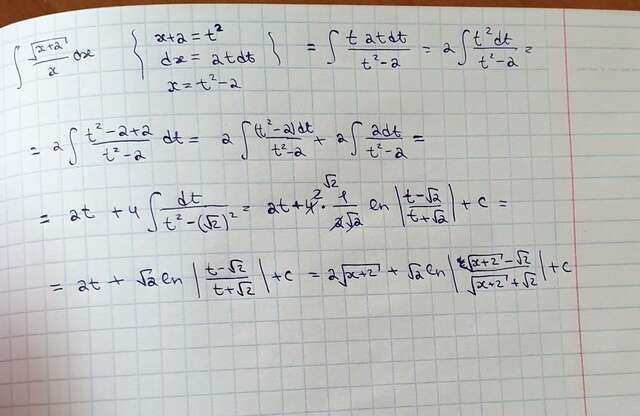 ∫ √(x+2)/x dx { x+2 = t² dx = 2t dt x = t²-2 } = ∫ t 2t dt/(t²-2) = 2∫ t² dt/(t²-2) =
= 2∫ (t²-2+2)/(t²-2) dt = 2∫ (t²-2)dt/(t²-2) + 2∫ 2dt/(t²-2) =
= 2t + 4∫ dt/(t²-(√2)²) = 2t + 4 · 1/(2√2) ln|(t-√2)/(t+√2)| + c =
= 2t + √2 ln|(t-√2)/(t+√2)| + c = 2√(x+2) + √2 ln|(√(x+2)-√2)/(√(x+2)+√2)| + c